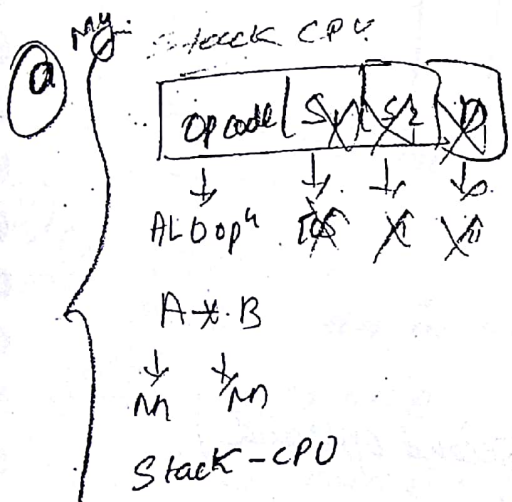 a
my
Stack CPU
opcode S1 S2 D
ALU opn TOS
A * B
Stack-CPU